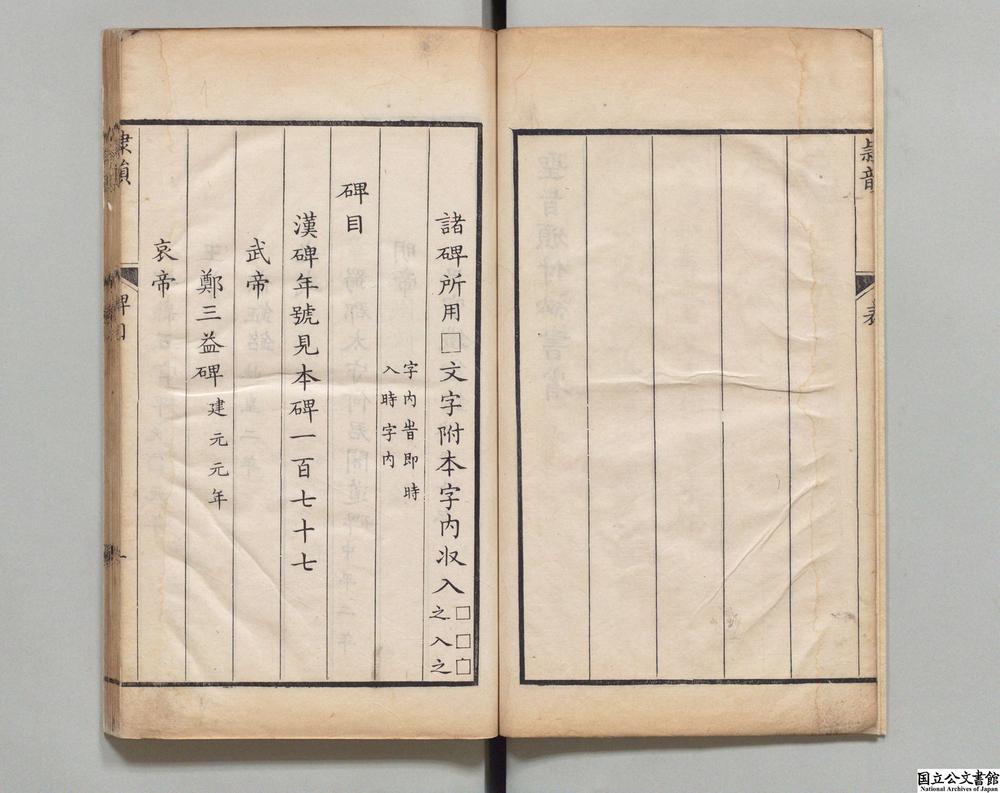 隸韻
表
諸碑所用□文字附本字內収入□□□
之入之
字內旹即時
入時字內
碑目
漢碑年號見本碑一百七十七
武帝
鄭三益碑建元元年
哀帝
碑目
一
国立公文書館
National Archives of Japan